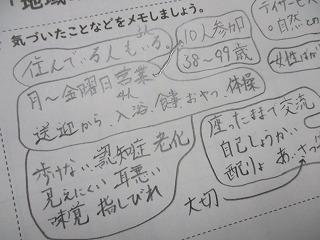 「地域
気づいたことなどをメモしましょう。
住んでいる人もいる。
10人参加
38〜99歳
月〜金曜日営業
送迎から、入浴、食事 おやつ、体操
歩けない、認知症 老化
見えにくい 耳悪い
味覚 指しびれ
デイサービス
。自然
女性
座ったままで交流
自己しょうかい
配りょ あ、
大切